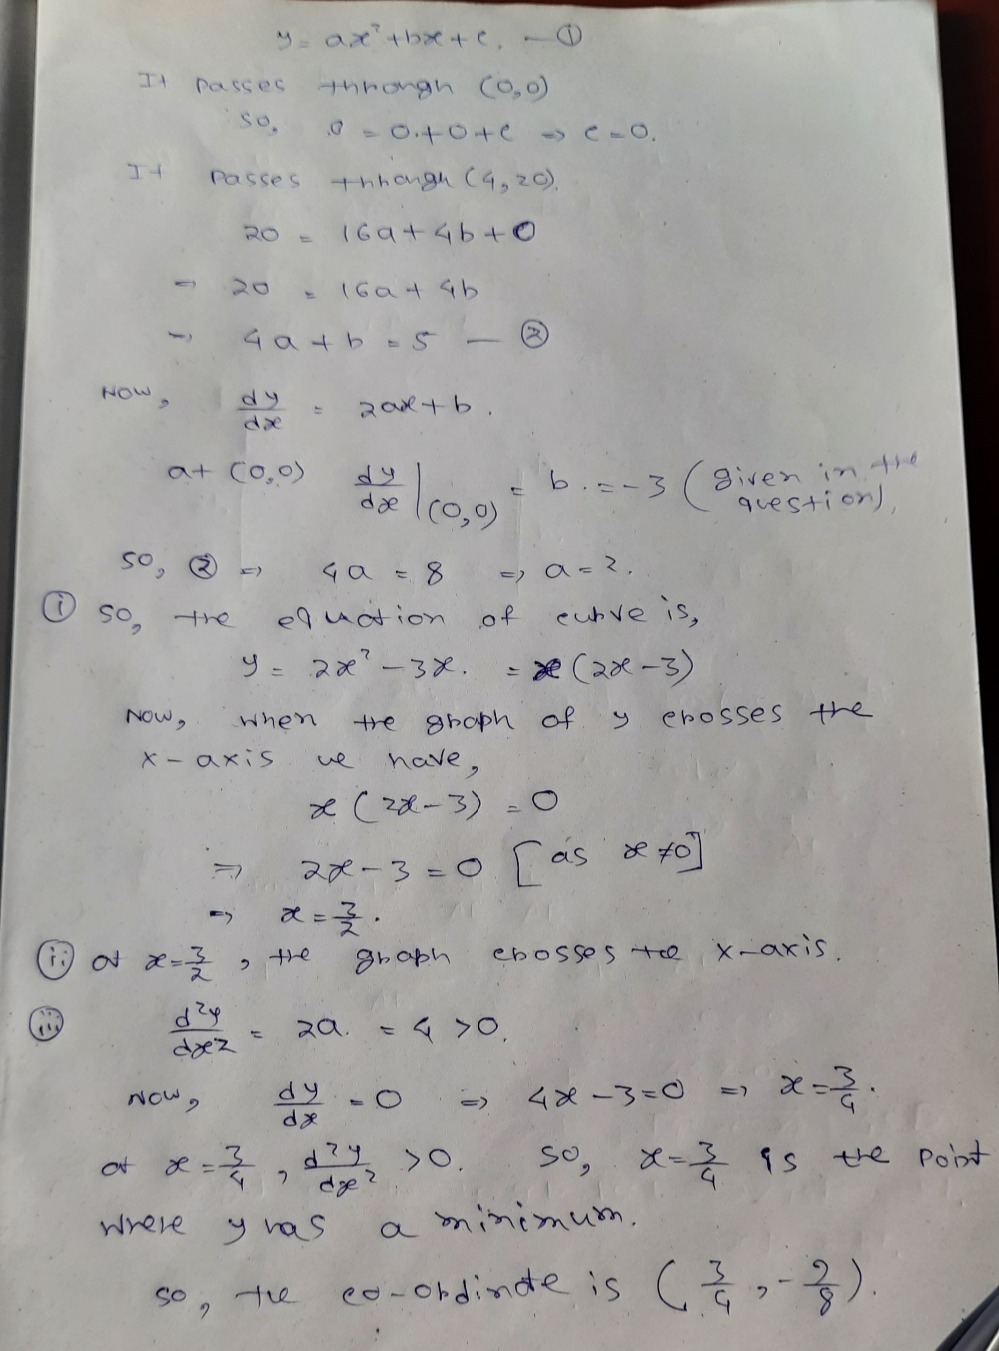 y = ax² + bx + c. — ①
It passes through (0,0)
so, 0 = 0 + 0 + c ⇒ c = 0.
It passes through (4, 20).
20 = 16a + 4b + 0
⇒ 20 = 16a + 4b
⇒ 4a + b = 5 — ②
Now, dy/dx = 2ax + b.
at (0,0) dy/dx|(0,0) = b = -3 (given in the question).
so, ② ⇒ 4a = 8 ⇒ a = 2.
(i) so, the equation of curve is,
y = 2x² - 3x. = x(2x - 3)
Now, when the graph of y crosses the
x-axis we have,
x(2x - 3) = 0
⇒ 2x - 3 = 0 [as x ≠ 0]
⇒ x = 3/2.
(ii) at x = 3/2, the graph crosses the x-axis.
(iii) d²y/dx² = 2a. = 4 > 0.
Now, dy/dx = 0 ⇒ 4x - 3 = 0 ⇒ x = 3/4.
at x = 3/4, d²y/dx² > 0. so, x = 3/4 is the point
where y has a minimum.
so, the co-ordinate is (3/4, -9/8).